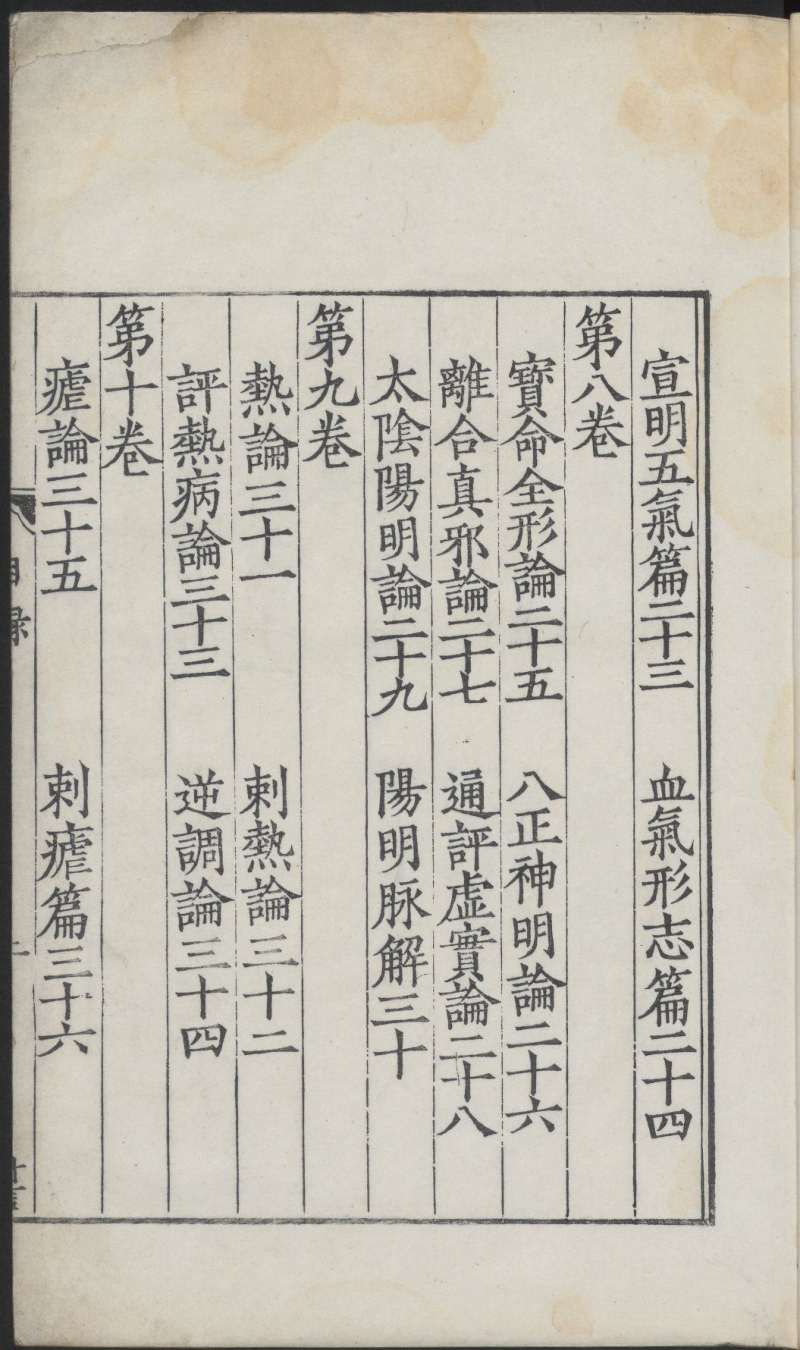 宣明五氣篇二十三　血氣形志篇二十四
第八卷
寶命全形論二十五　八正神明論二十六
離合真邪論二十七　通評虛實論二十八
太陰陽明論二十九　陽明脉解三十
第九卷
熱論三十一　刺熱論三十二
評熱病論三十三　逆調論三十四
第十卷
瘧論三十五　刺瘧篇三十六
目錄